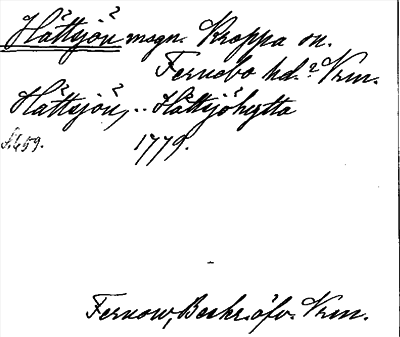 Hättsjön magn. Kroppa sn.
Fernebo hd.? Vrm.
Hättsjön, .. Hättsjöhytta
S. 459. 1779.
Fernow, Beskr. öfv. Vrm.